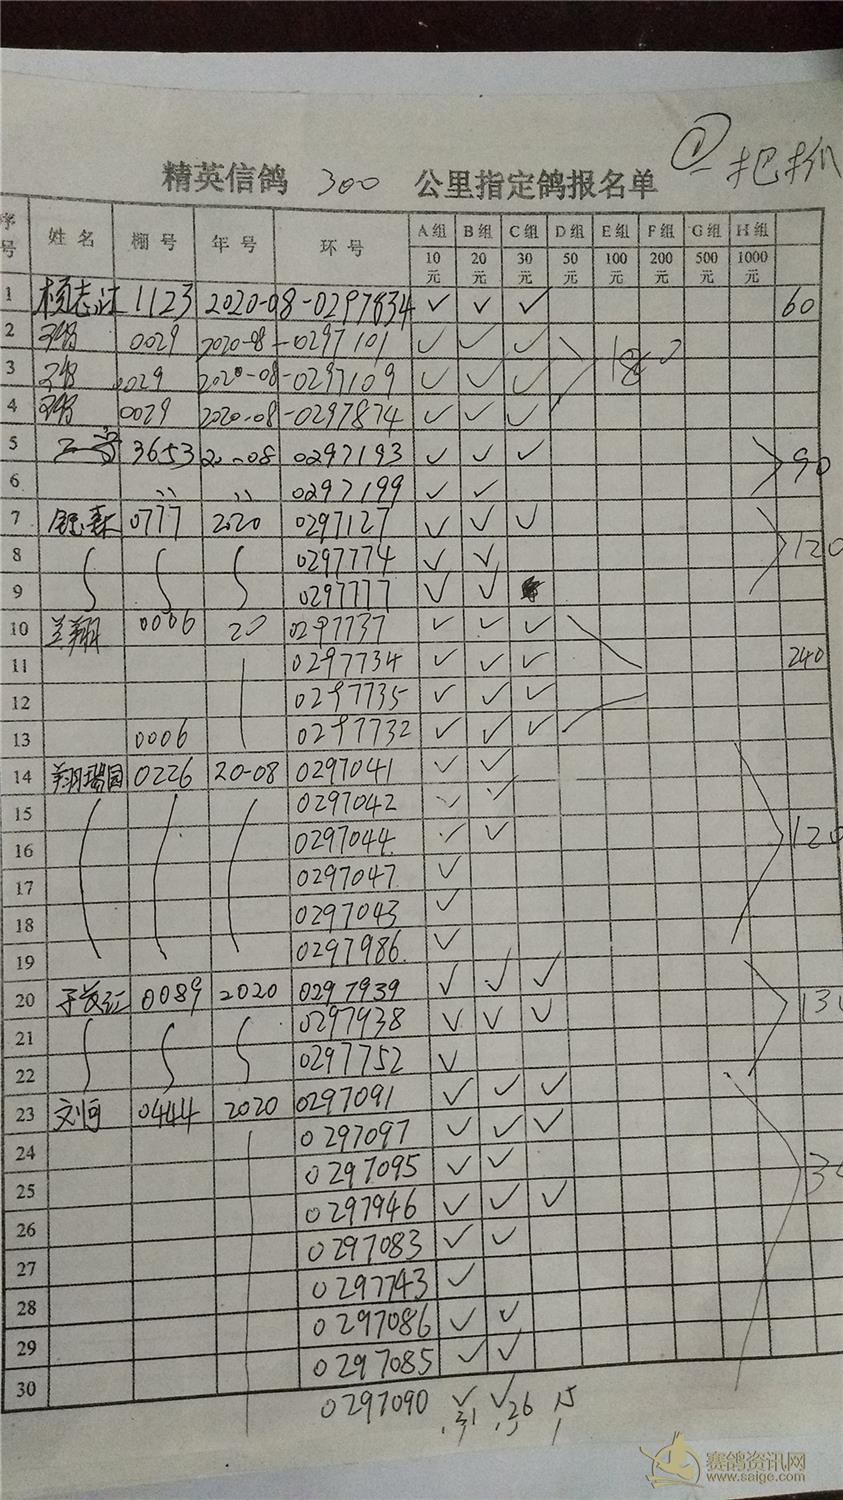 ① 一把抓
精英信鸽 300 公里指定鸽报名单
序号 姓名 棚号 年号 环号 A组 B组 C组 D组 E组 F组 G组 H组
10元 20元 30元 50元 100元 200元 500元 1000元
1 杨志江 1123 2020-08-0297834 ✓ ✓ ✓ 60
2 0029 2020-08-0297101 ✓ ✓ ✓
3 0029 2020-08-0297109 ✓ ✓ ✓ 180
4 0029 2020-08-0297874 ✓ ✓ ✓
5 3653 20-08 0297193 ✓ ✓ ✓ 90
6 〃 〃 0297199 ✓ ✓
7 0777 2020 0297127 ✓ ✓ ✓
8 0297774 ✓ ✓ 120
9 0297777 ✓ ✓
10 兰翔 0006 20 0297737 ✓ ✓ ✓
11 0297734 ✓ ✓ ✓ 240
12 0297735 ✓ ✓ ✓
13 0006 0297732 ✓ ✓ ✓
14 翔瑞园 0226 20-08 0297041 ✓ ✓
15 0297042 ✓ ✓
16 0297044 ✓ ✓ 120
17 0297047 ✓
18 0297043 ✓
19 0297986 ✓
20 0089 2020 0297939 ✓ ✓ ✓
21 0297938 ✓ ✓ ✓ 130
22 0297752 ✓
23 刘恒 0444 2020 0297091 ✓ ✓ ✓
24 0297097 ✓ ✓ ✓
25 0297095 ✓ ✓
26 0297946 ✓ ✓ ✓
27 0297083 ✓ ✓
28 0297743 ✓
29 0297086 ✓ ✓
30 0297085 ✓ ✓
0297090 ✓ ✓
31 26 15
赛鸽资讯网
www.saige.com